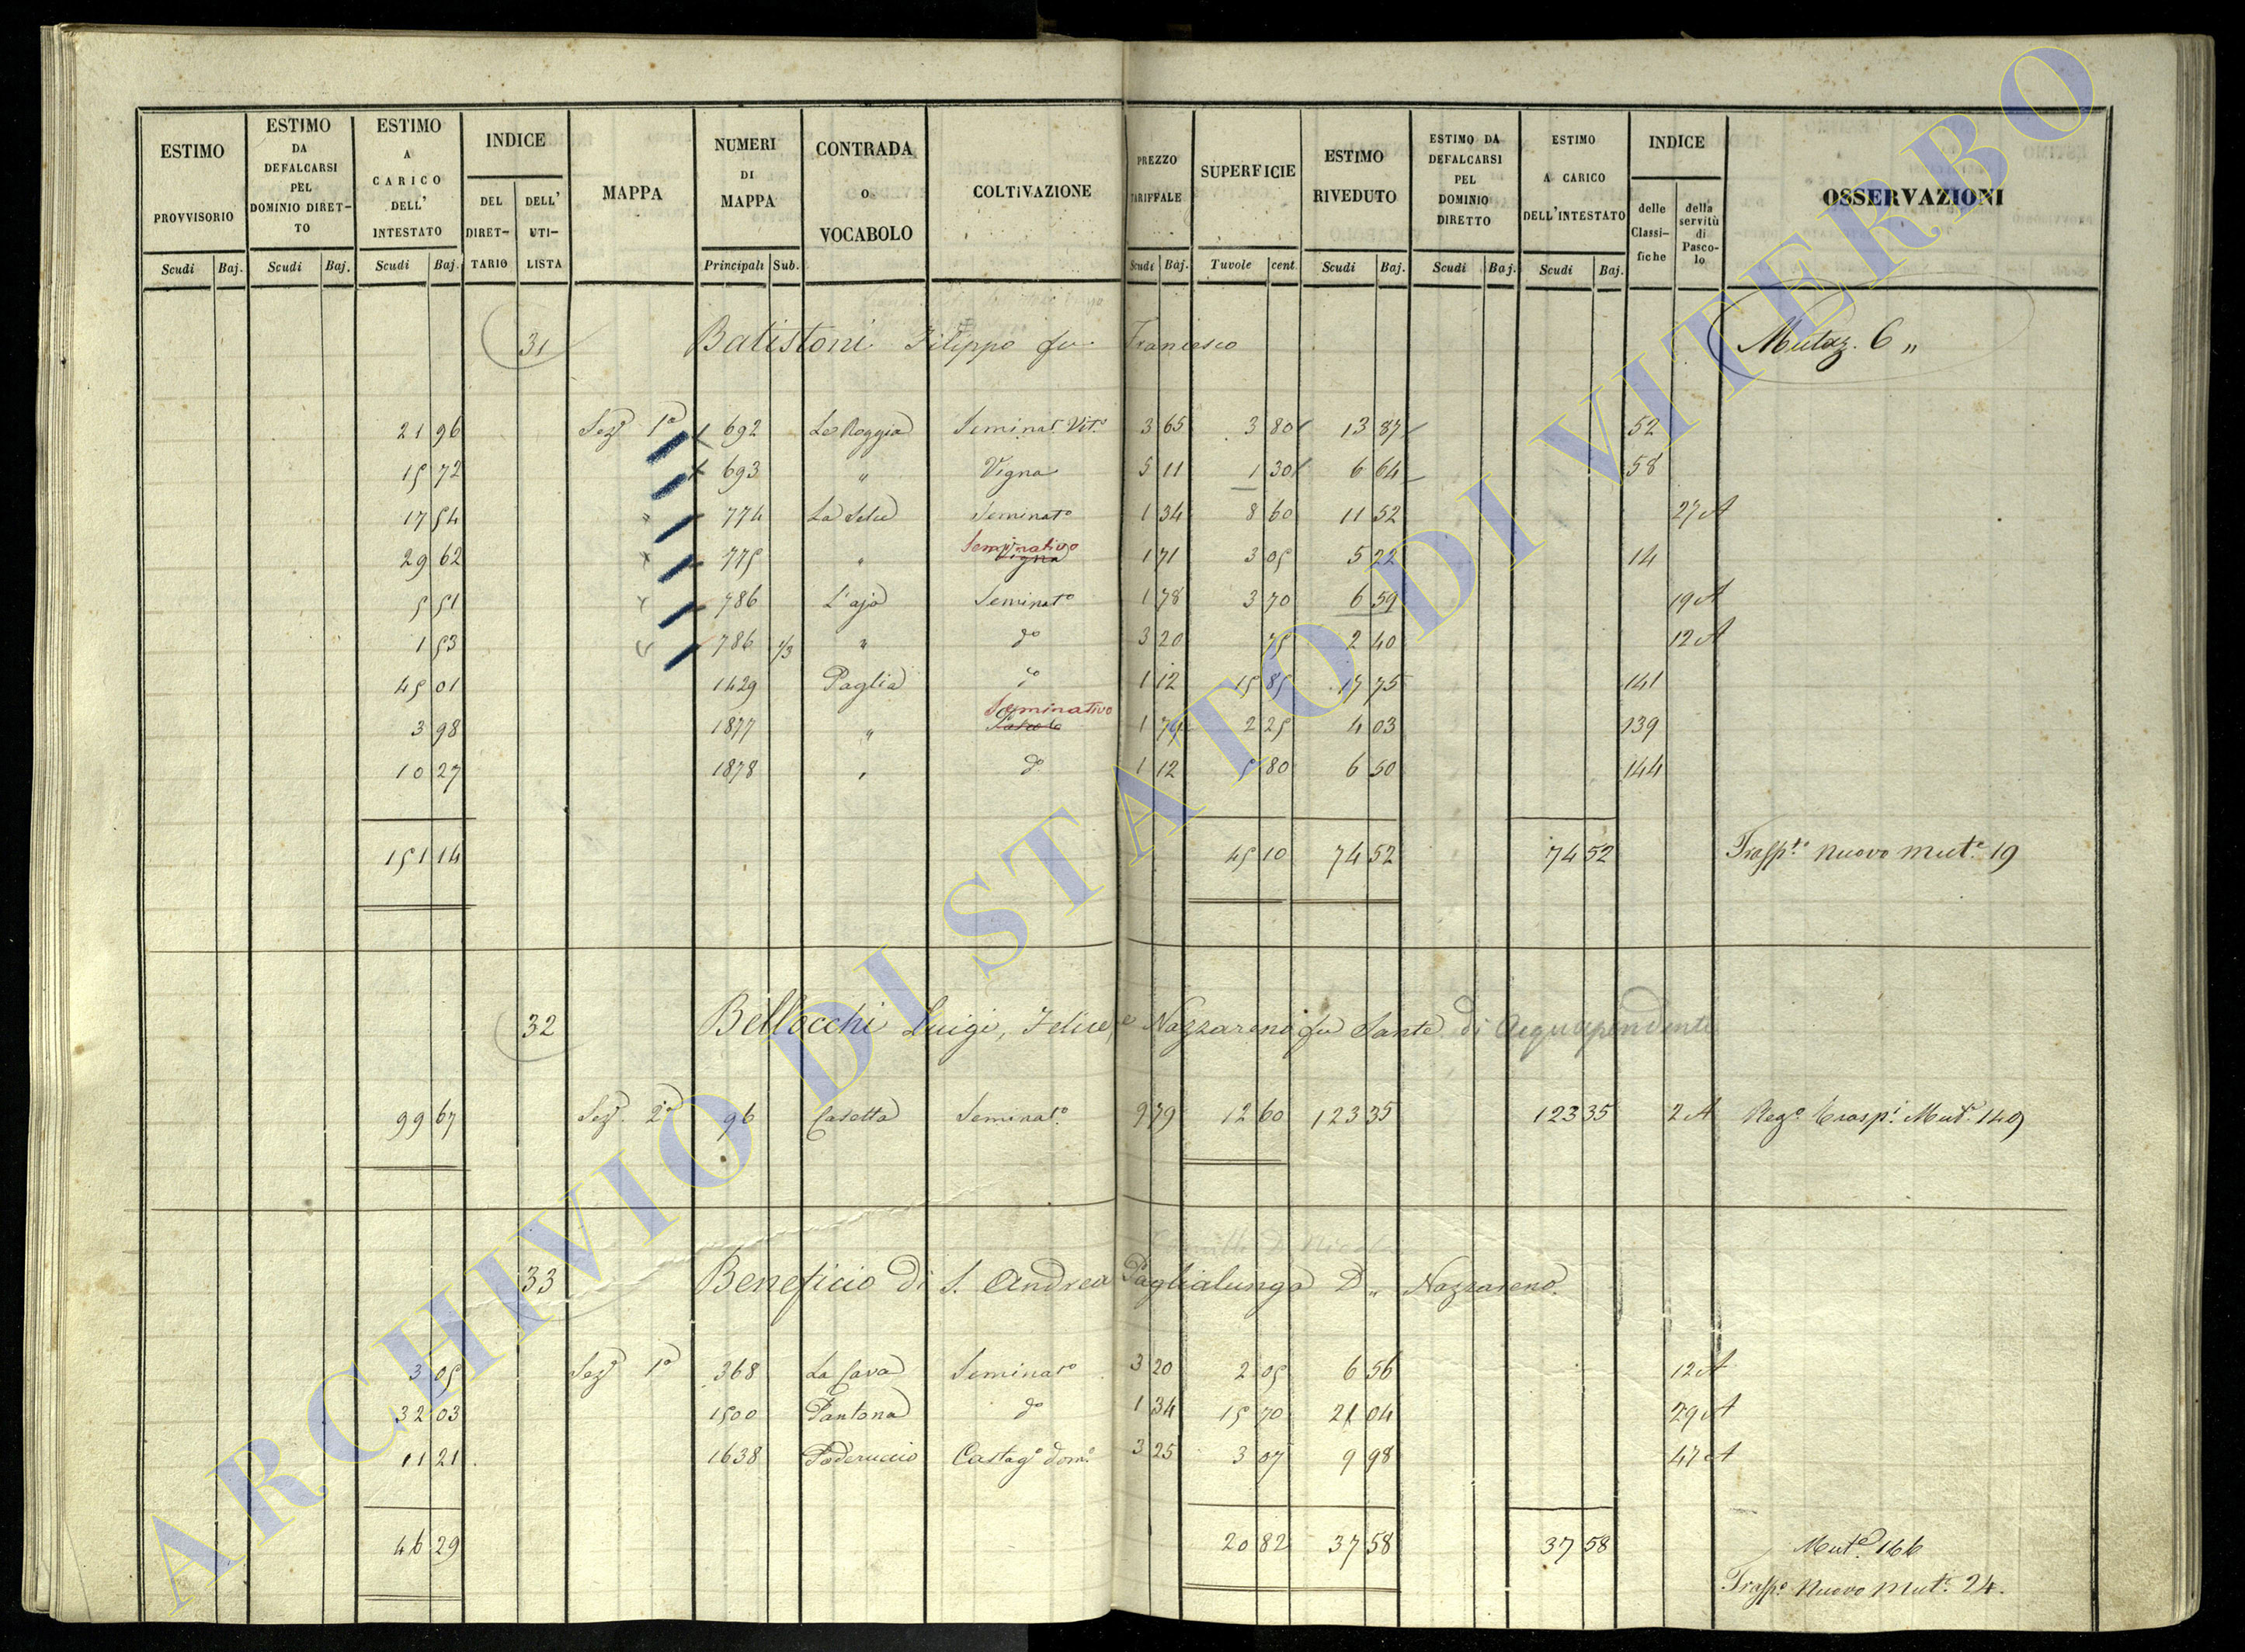 ESTIMO PROVVISORIO Scudi Baj.
ESTIMO DA DEFALCARSI PEL DOMINIO DIRET- TO Scudi Baj.
ESTIMO A CARICO DELL' INTESTATO Scudi Baj.
INDICE DEL DIRET- TARIO DELL' UTI- LISTA
MAPPA
NUMERI DI MAPPA Principali Sub.
CONTRADA O VOCABOLO
COLTIVAZIONE
PREZZO TARIFFALE Scudi Baj.
SUPERFICIE Tavole cent
ESTIMO RIVEDUTO Scudi Baj.
ESTIMO DA DEFALCARSI PEL DOMINIO DIRETTO Scudi Baj.
ESTIMO A CARICO DELL'INTESTATO Scudi Baj.
INDICE delle Classi- fiche della servitù di Pasco- lo
OSSERVAZIONI
31 Batistoni Filippo fu Francesco Mutaz. 6 "
21 96 Sez.e 1a 692 Le Roggia Seminat. Vit.o 3 65 3 80 13 87 52
15 72 693 " Vigna 5 11 1 30 6 64 58
17 54 " 774 La Selce Seminat.o 1 34 8 60 11 52 27 A
29 62 775 " Seminativo Vigna 1 71 3 05 5 22 14
5 51 786 L'aja Seminat.o 1 78 3 70 6 59 19 A
1 53 786 1/3 " do 3 20 75 2 40 12 A
45 01 1429 Paglia do 1 12 15 85 17 75 141
3 98 1877 " Seminativo Pascolo 1 79 2 25 4 03 139
10 27 1878 " do 1 12 5 80 6 50 144
151 14 45 10 74 52 74 52 Trasp.to Nuovo Mut.e 19
32 Bellocchi Luigi, Felice, e Nazzareno fu Sante di Acquapendente
99 67 Sez.e 2a 96 Casetta Seminat.o 9 79 12 60 123 35 123 35 2 A Reg.o trasp.t Mut.e 149
33 Beneficio di S. Andrea Paglialunga D. Nazzareno
3 05 Sez.e 1a 368 La Cava Seminat.o 3 20 2 05 6 56 12 A
32 03 1500 Pantana do 1 34 15 70 21 04 29 A
11 21 1638 Poderuccio Castag.o dom.o 3 25 3 07 9 98 47 A
46 29 20 82 37 58 37 58 Mut.e 166
Trasp.o Nuovo Mut.e 24.
ARCHIVIO DI STATO DI VITERBO